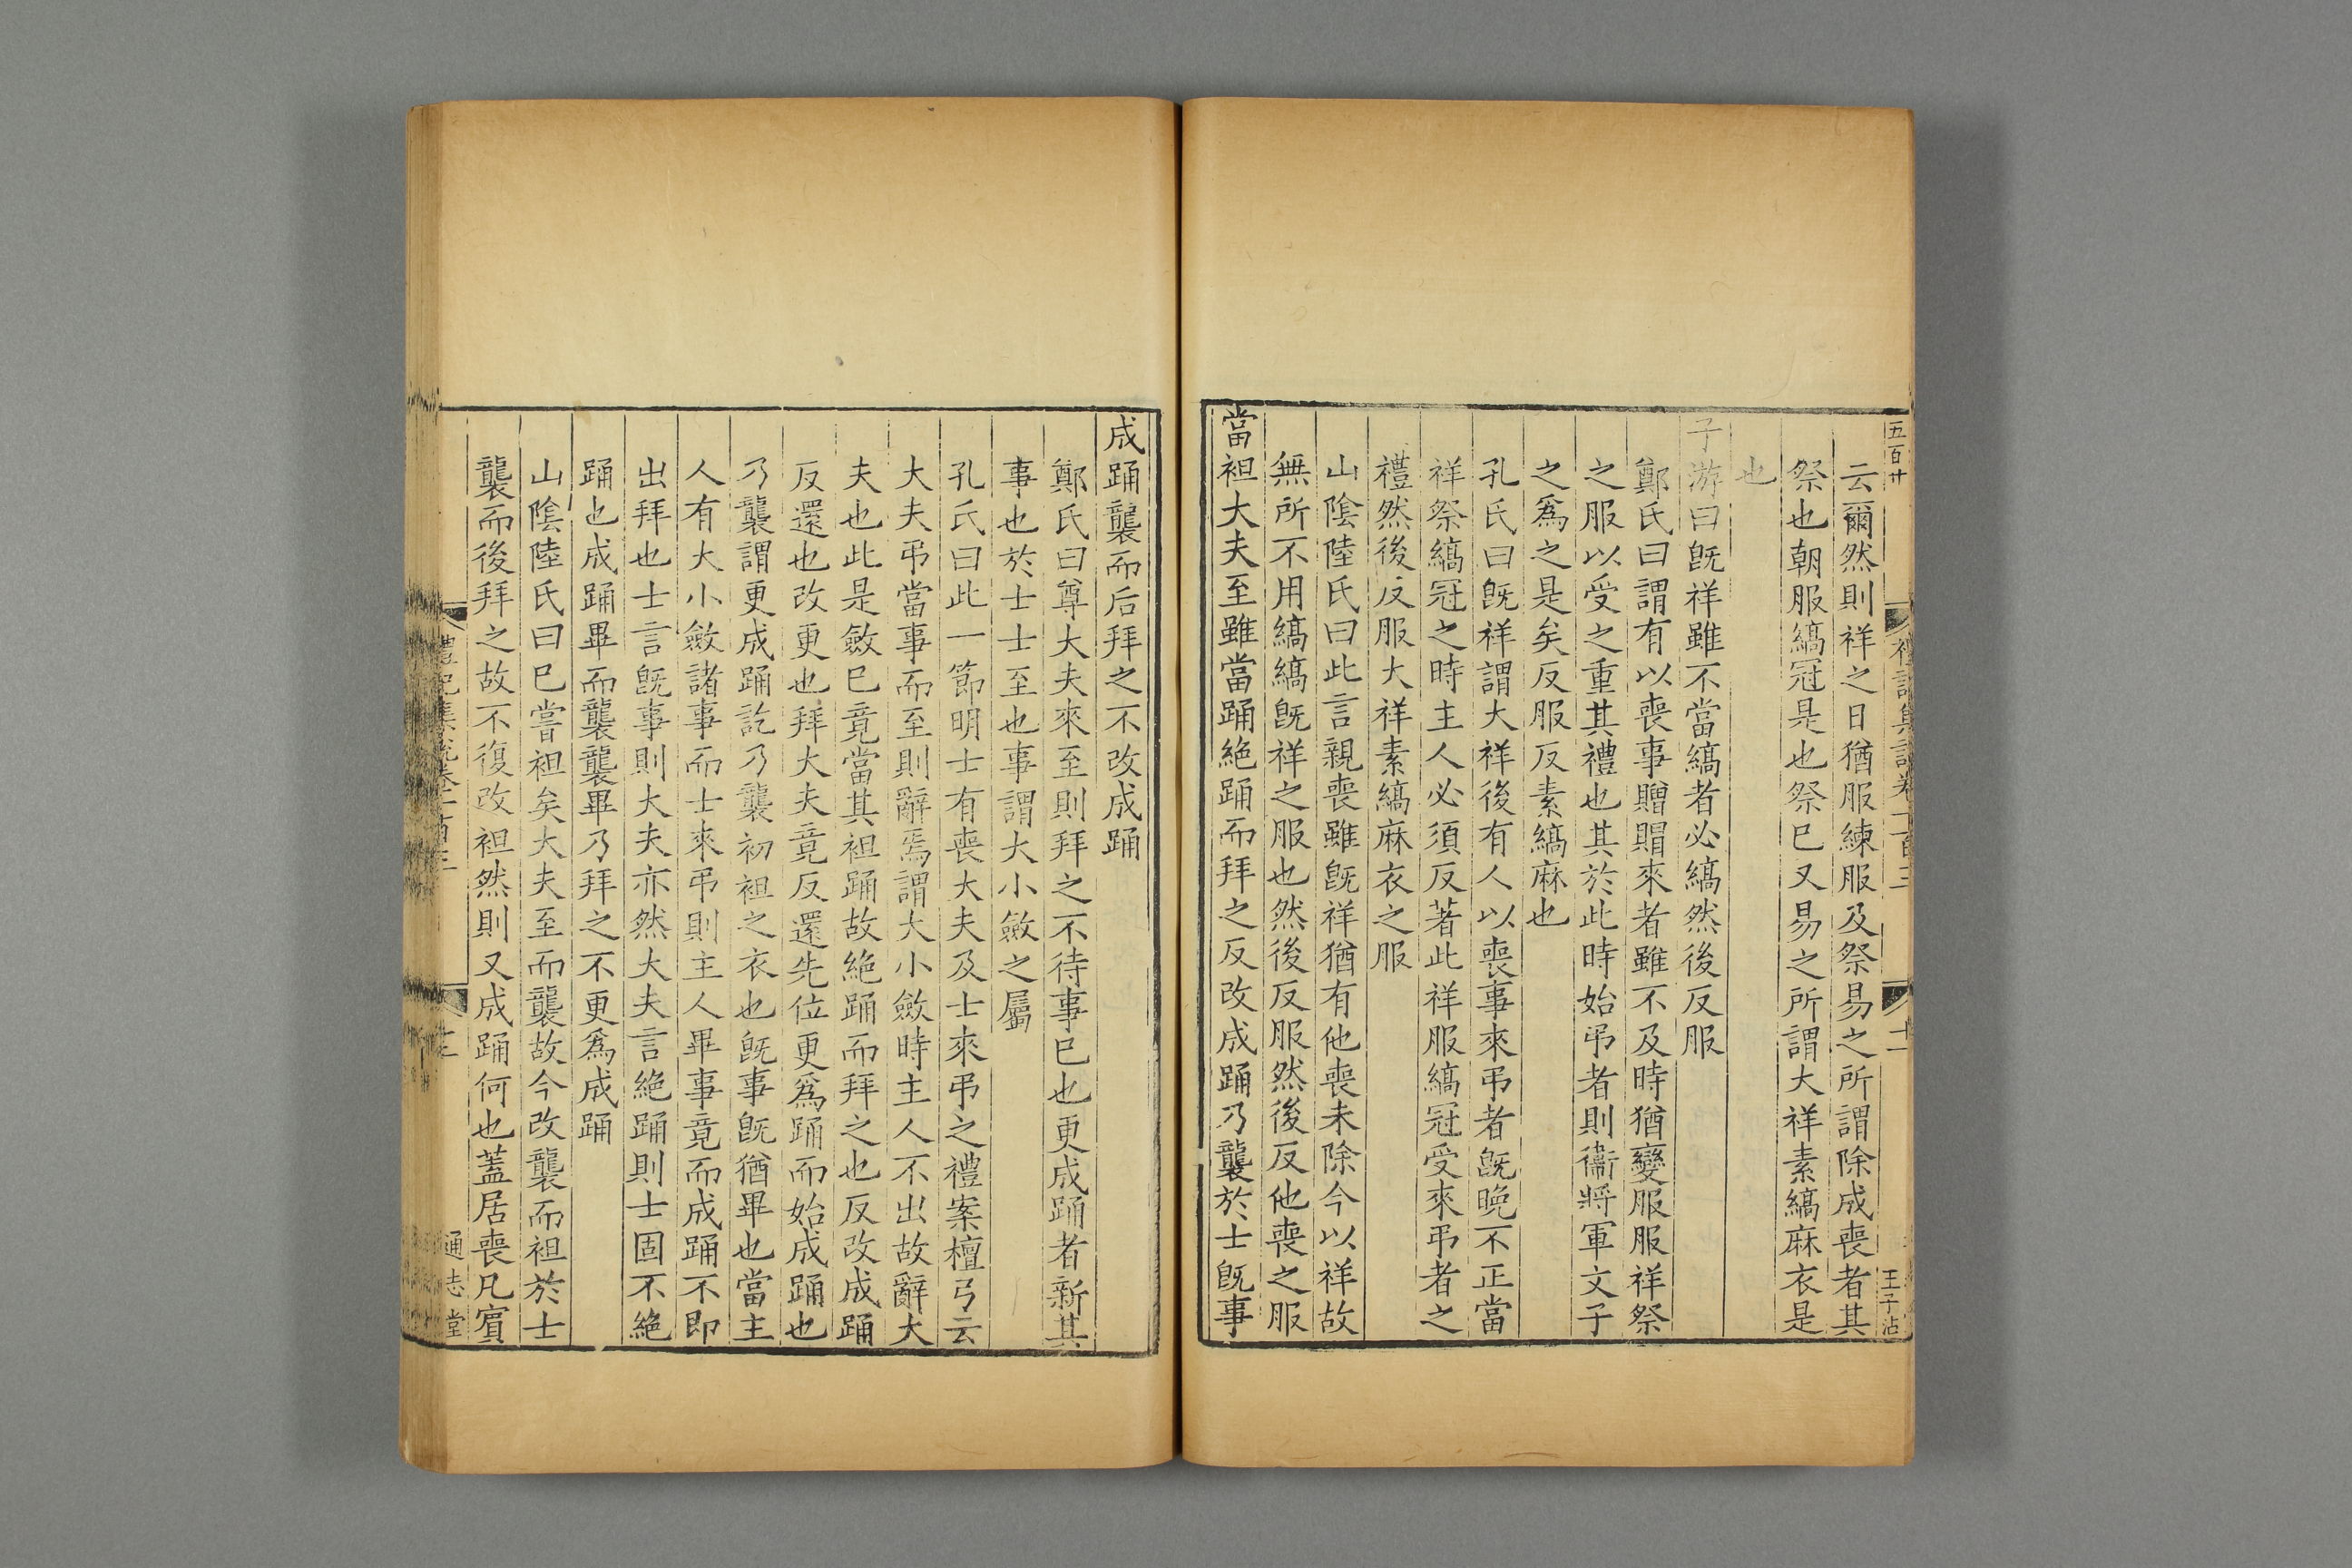 五百廿
禮記集說卷一百三
十一
王子沾
云爾然則祥之日猶服練服及祭易之所謂除成喪者其
祭也朝服縞冠是也祭巳又易之所謂大祥素縞麻衣是
也
子游曰旣祥雖不當縞者必縞然後反服
鄭氏曰謂有以喪事贈賵來者雖不及時猶變服服祥祭
之服以受之重其禮也其於此時始弔者則衞將軍文子
之爲之是矣反服反素縞麻也
孔氏曰旣祥謂大祥後有人以喪事來弔者旣晚不正當
祥祭縞冠之時主人必須反著此祥服縞冠受來弔者之
禮然後反服大祥素縞麻衣之服
山陰陸氏曰此言親喪雖旣祥猶有他喪未除今以祥故
無所不用縞縞旣祥之服也然後反服然後反他喪之服
當袒大夫至雖當踊絶踊而拜之反改成踊乃襲於士旣事
成踊襲而后拜之不改成踊
鄭氏曰尊大夫來至則拜之不待事巳也更成踊者新其
事也於士士至也事謂大小斂之屬
孔氏曰此一節明士有喪大夫及士來弔之禮案檀弓云
大夫弔當事而至則辭焉謂大小斂時主人不出故辭大
夫也此是斂巳竟當其袒踊故絶踊而拜之也反改成踊
反還也改更也拜大夫竟反還先位更爲踊而始成踊也
乃襲謂更成踊訖乃襲初袒之衣也旣事旣猶畢也當主
人有大小斂諸事而士來弔則主人畢事竟而成踊不即
出拜也士言旣事則大夫亦然大夫言絶踊則士固不絶
踊也成踊畢而襲襲畢乃拜之不更爲成踊
山陰陸氏曰巳嘗袒矣大夫至而襲故今改襲而袒於士
襲而後拜之故不復改袒然則又成踊何也蓋居喪凡賓
禮記集說卷一百三
通志堂